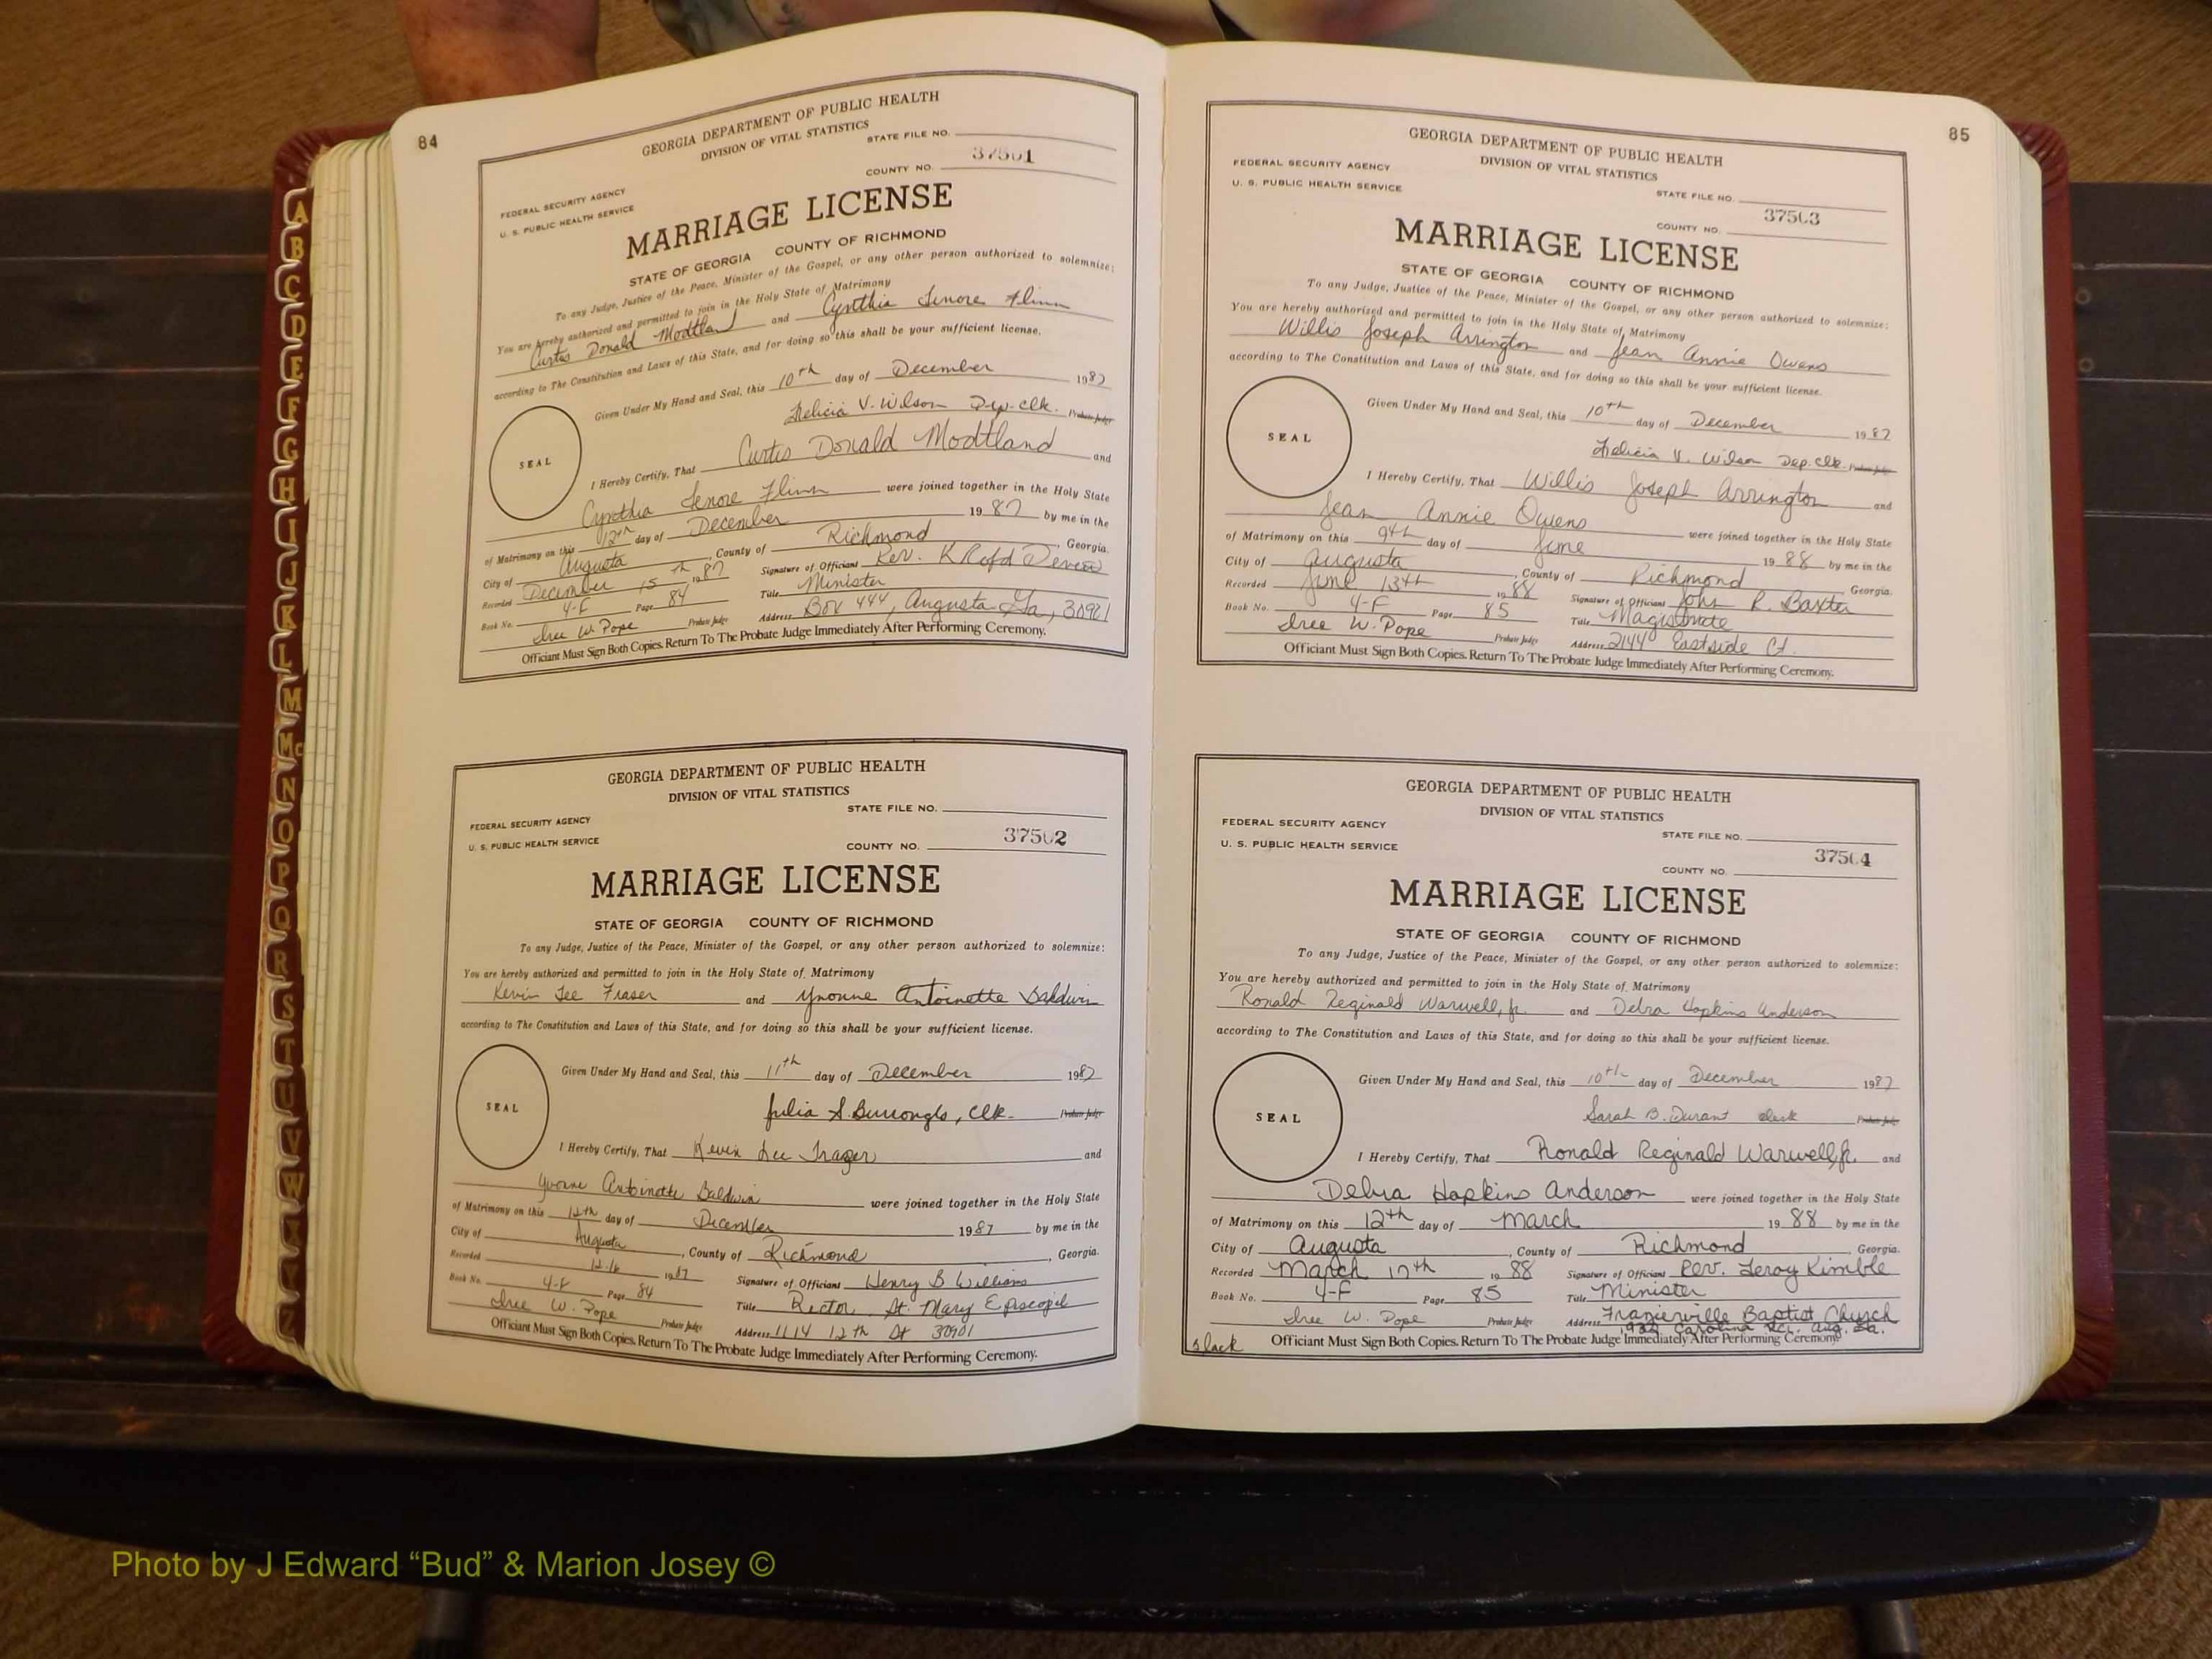 84
GEORGIA DEPARTMENT OF PUBLIC HEALTH
DIVISION OF VITAL STATISTICS
STATE FILE NO.
37501
COUNTY NO.
FEDERAL SECURITY AGENCY
U. S. PUBLIC HEALTH SERVICE
MARRIAGE LICENSE
STATE OF GEORGIA COUNTY OF RICHMOND
To any Judge, Justice of the Peace, Minister of the Gospel, or any other person authorized to solemnize:
You are hereby authorized and permitted to join in the Holy State of Matrimony
Curtis Donald Modtland and Cynthia Lenore Flinn
according to The Constitution and Laws of this State, and for doing so this shall be your sufficient license.
Given Under My Hand and Seal, this 10th day of December 1987
Felicia V. Wilson Dep. Clk. Probate Judge
SEAL
I Hereby Certify, That Curtis Donald Modtland and
Cynthia Lenore Flinn were joined together in the Holy State
of Matrimony on this 12th day of December 1987 by me in the
City of Augusta, County of Richmond, Georgia.
Recorded December 15th 1987 Signature of Officiant Rev.
Book No. 4-F Page 84 Title Minister
Iree W. Pope Probate Judge Address Box 444, Augusta Ga, 30901
Officiant Must Sign Both Copies. Return To The Probate Judge Immediately After Performing Ceremony.
GEORGIA DEPARTMENT OF PUBLIC HEALTH
DIVISION OF VITAL STATISTICS
STATE FILE NO.
FEDERAL SECURITY AGENCY
37502
U. S. PUBLIC HEALTH SERVICE
COUNTY NO.
MARRIAGE LICENSE
STATE OF GEORGIA COUNTY OF RICHMOND
To any Judge, Justice of the Peace, Minister of the Gospel, or any other person authorized to solemnize:
You are hereby authorized and permitted to join in the Holy State of Matrimony
Kevin Lee Fraser and Yvonne Antoinette Baldwin
according to The Constitution and Laws of this State, and for doing so this shall be your sufficient license.
Given Under My Hand and Seal, this 11th day of December 1987
SEAL
Julia S. Burroughs, Clk. Probate Judge
I Hereby Certify, That Kevin Lee Frazer and
Yvonne Antoinette Baldwin were joined together in the Holy State
of Matrimony on this 12th day of December 1987 by me in the
City of Augusta, County of Richmond, Georgia.
Recorded 12-16 1987 Signature of Officiant Henry B Williams
Book No. 4-F Page 84 Title Rector St. Mary Episcopil
Iree W. Pope Probate Judge Address 1114 12th St 30901
Officiant Must Sign Both Copies. Return To The Probate Judge Immediately After Performing Ceremony.
85
GEORGIA DEPARTMENT OF PUBLIC HEALTH
DIVISION OF VITAL STATISTICS
FEDERAL SECURITY AGENCY
U. S. PUBLIC HEALTH SERVICE
STATE FILE NO.
37503
COUNTY NO.
MARRIAGE LICENSE
STATE OF GEORGIA COUNTY OF RICHMOND
To any Judge, Justice of the Peace, Minister of the Gospel, or any other person authorized to solemnize:
You are hereby authorized and permitted to join in the Holy State of Matrimony
Willis Joseph Arrington and Jean Annie Owens
according to The Constitution and Laws of this State, and for doing so this shall be your sufficient license.
Given Under My Hand and Seal, this 10th day of December 1987
SEAL
Felicia V. Wilson Dep. Clk. Probate Judge
I Hereby Certify, That Willis Joseph Arrington and
Jean Annie Owens were joined together in the Holy State
of Matrimony on this 9th day of June 1988 by me in the
City of Augusta, County of Richmond, Georgia.
Recorded June 13th 1988 Signature of Officiant John R. Baxter
Book No. 4-F Page 85 Title Magistrate
Iree W. Pope Probate Judge Address 2144 Eastside Ct.
Officiant Must Sign Both Copies. Return To The Probate Judge Immediately After Performing Ceremony.
GEORGIA DEPARTMENT OF PUBLIC HEALTH
DIVISION OF VITAL STATISTICS
FEDERAL SECURITY AGENCY
STATE FILE NO.
U. S. PUBLIC HEALTH SERVICE
37504
COUNTY NO.
MARRIAGE LICENSE
STATE OF GEORGIA COUNTY OF RICHMOND
To any Judge, Justice of the Peace, Minister of the Gospel, or any other person authorized to solemnize:
You are hereby authorized and permitted to join in the Holy State of Matrimony
Ronald Reginald Warwell, Jr. and Debra Hopkins Anderson
according to The Constitution and Laws of this State, and for doing so this shall be your sufficient license.
Given Under My Hand and Seal, this 10th day of December 1987
SEAL
Sarah B. Durant clerk Probate Judge
I Hereby Certify, That Ronald Reginald Warwell, Jr. and
Debra Hopkins Anderson were joined together in the Holy State
of Matrimony on this 12th day of March 1988 by me in the
City of Augusta, County of Richmond, Georgia.
Recorded March 17th 1988 Signature of Officiant Rev. Leroy Kimble
Book No. 4-F Page 85 Title Minister
Iree W. Pope Probate Judge Address Franzierville Baptist Church
Carolina Rd. Aug. Ga.
Officiant Must Sign Both Copies. Return To The Probate Judge Immediately After Performing Ceremony.
A
B
C
D
E
F
G
H
I
J
K
L
M
Mc
N
O
P
Q
R
S
T
U
V
W
Photo by J Edward “Bud” & Marion Josey ©